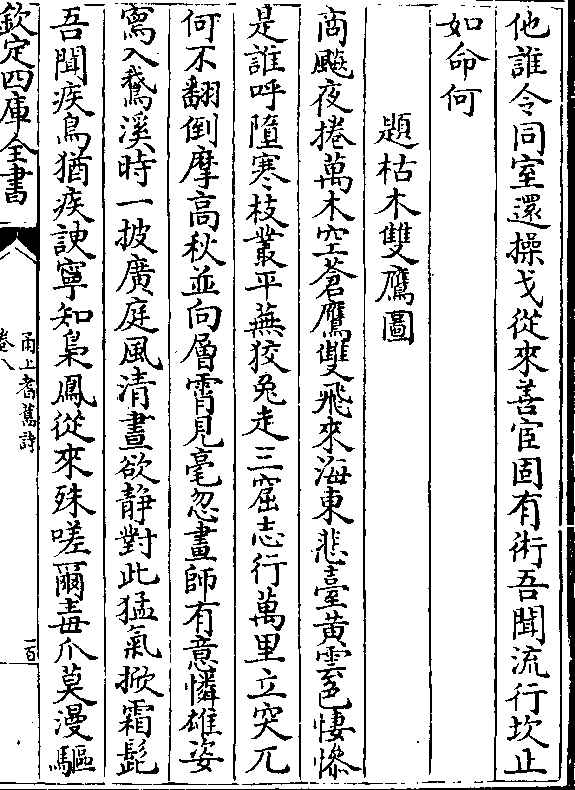 他誰令同室還操戈從來善宦固有術吾聞流行坎止
如命何
題枯木雙鷹圖
商飈夜捲萬木空蒼鷹雙飛來海東悲臺黄雲色悽慘
是誰呼墮寒枝叢平蕪狡兔走三窟志行萬里立突兀
何不翻倒摩高秋並向層霄見毫忽畫師有意憐雄姿
寫入鵞溪時一披廣庭風清晝欲静對此猛氣掀霜髭
吾聞疾鳥猶疾諛寧知梟鳳從來殊嗟爾毒爪莫漫驅
欽定四庫全書
甬上耆舊詩
卷八
一百